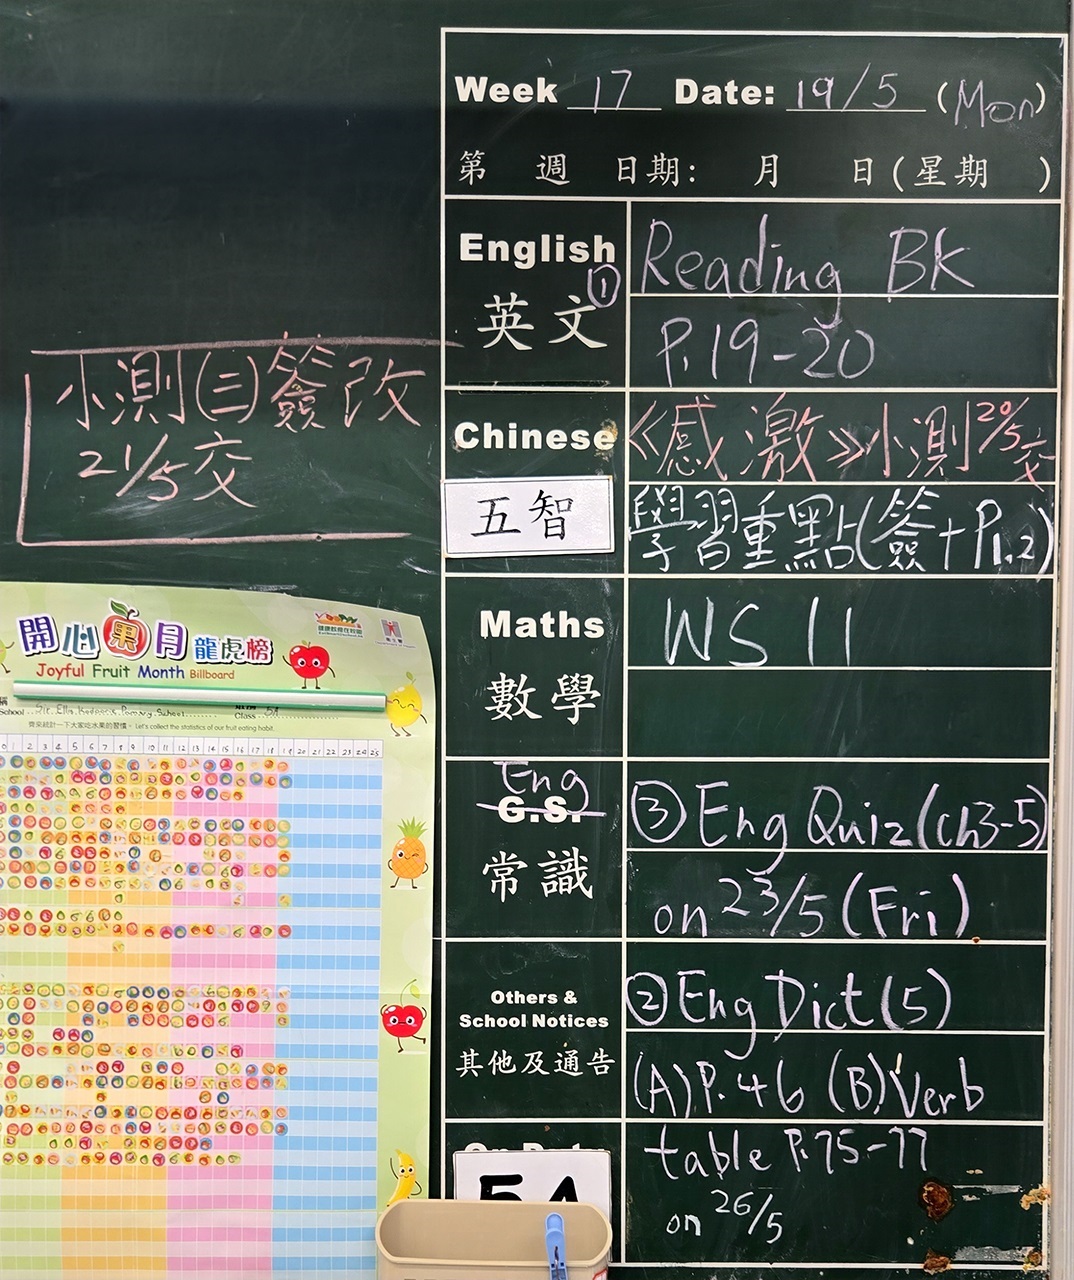 Week 17 Date: 19/5 (Mon)
第 週 日期: 月 日(星期 )
English ① Reading BK
英文 P.19-20
小測(三)簽改
21/5交
Chinese 《感激》小測 20/5交
五智 學習重點(簽+P1,2)
Maths WS 11
數學
Eng
G.S. ③ Eng Quiz (ch3-5)
常識 on 23/5 (Fri)
Others &
School Notices ② Eng Dict (5)
其他及通告 (A) P.46 (B) Verb
table P.75-77
on 26/5
5A
開心果月龍虎榜
Joyful Fruit Month Billboard
School
Class 5A
齊來統計一下大家吃水果的習慣。Let's collect the statistics of our fruit eating habit.
0 1 2 3 4 5 6 7 8 9 10 11 12 13 14 15 16 17 18 19 20 21 22 23 24 25